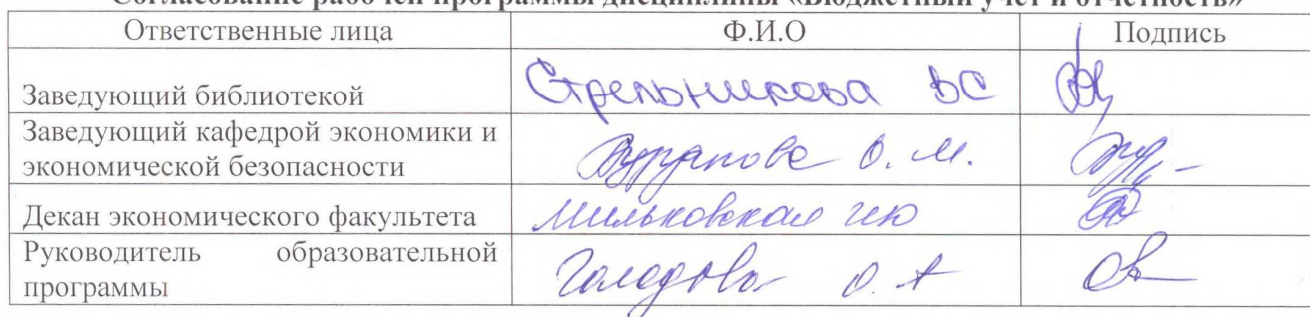 Согласование рабочей программы дисциплины «Бюджетный учет и отчетность»
Ответственные лица Ф.И.О Подпись
Заведующий библиотекой Стрельникова ВС
Заведующий кафедрой экономики и
экономической безопасности О. М.
Декан экономического факультета Мильковская
Руководитель образовательной
программы О. А